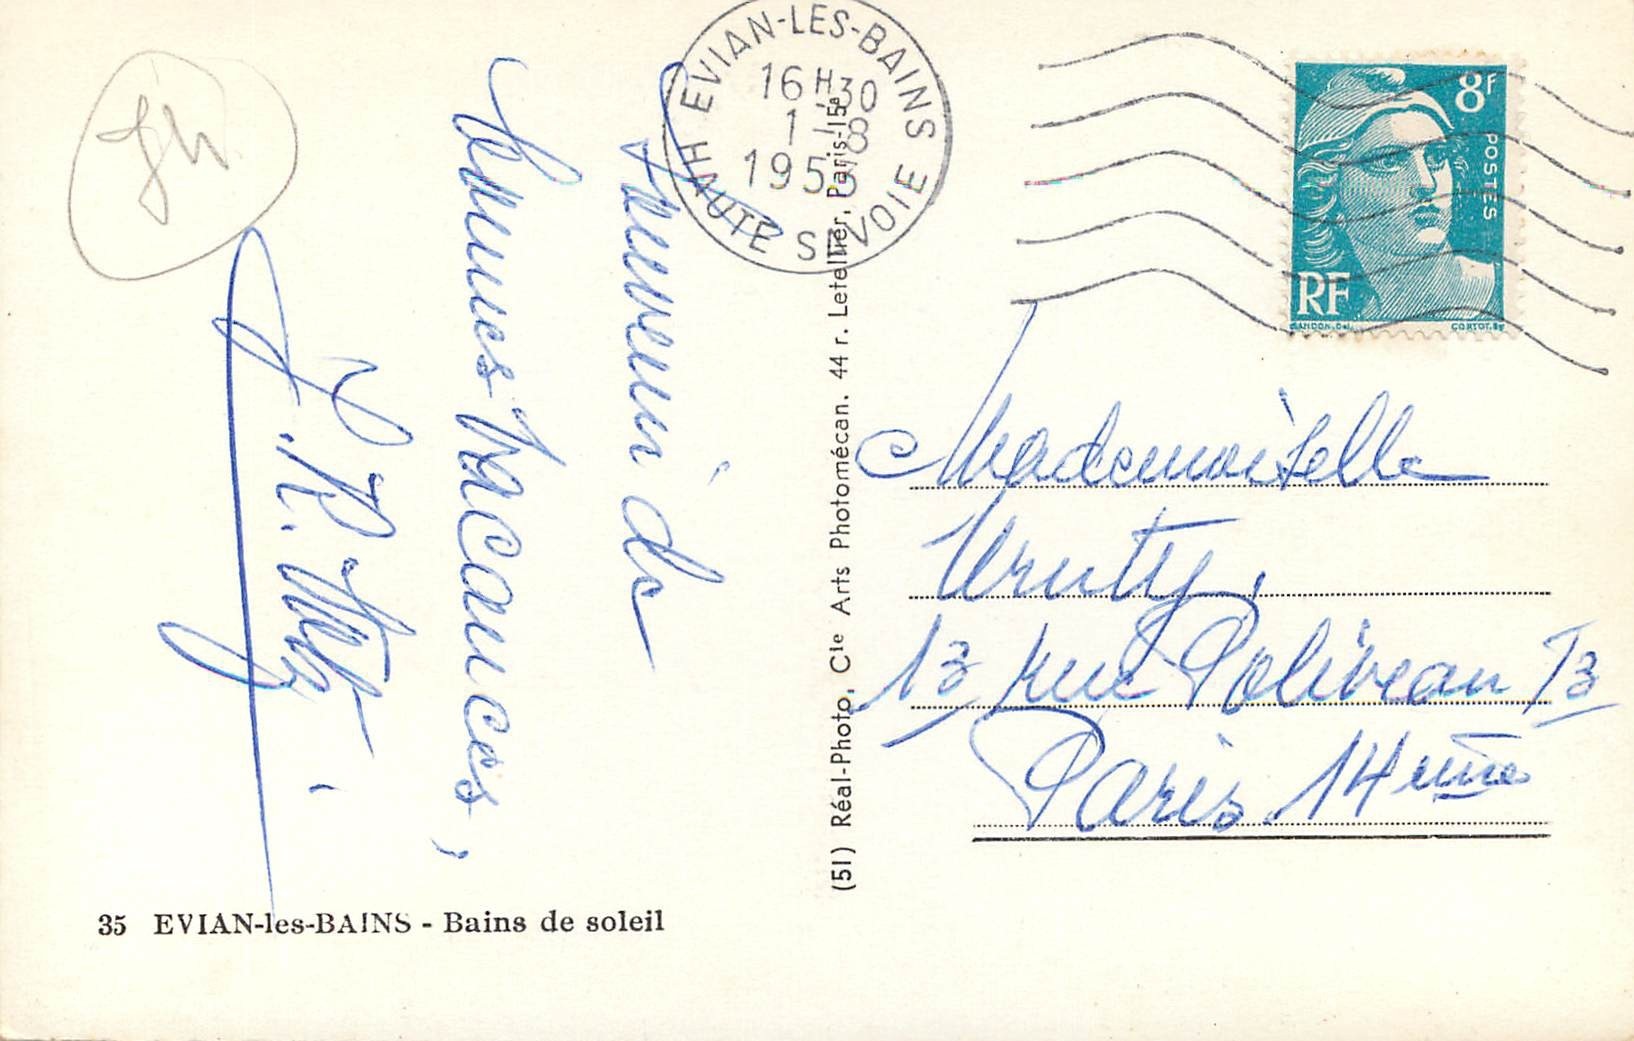 EVIAN-LES-BAINS
16H30
1-8
HAUTE SAVOIE
8F
POSTES
RF
GANDON.Del.
CORTOT.Sc
Souvenir de
bonnes vacances,
Mademoiselle
Urruty,
13 rue Poliveau 13
Paris 14ème
(51) Réal-Photo, Cie Arts Photomécan. 44 r. Letellier, Paris-15e
35 EVIAN-les-BAINS - Bains de soleil